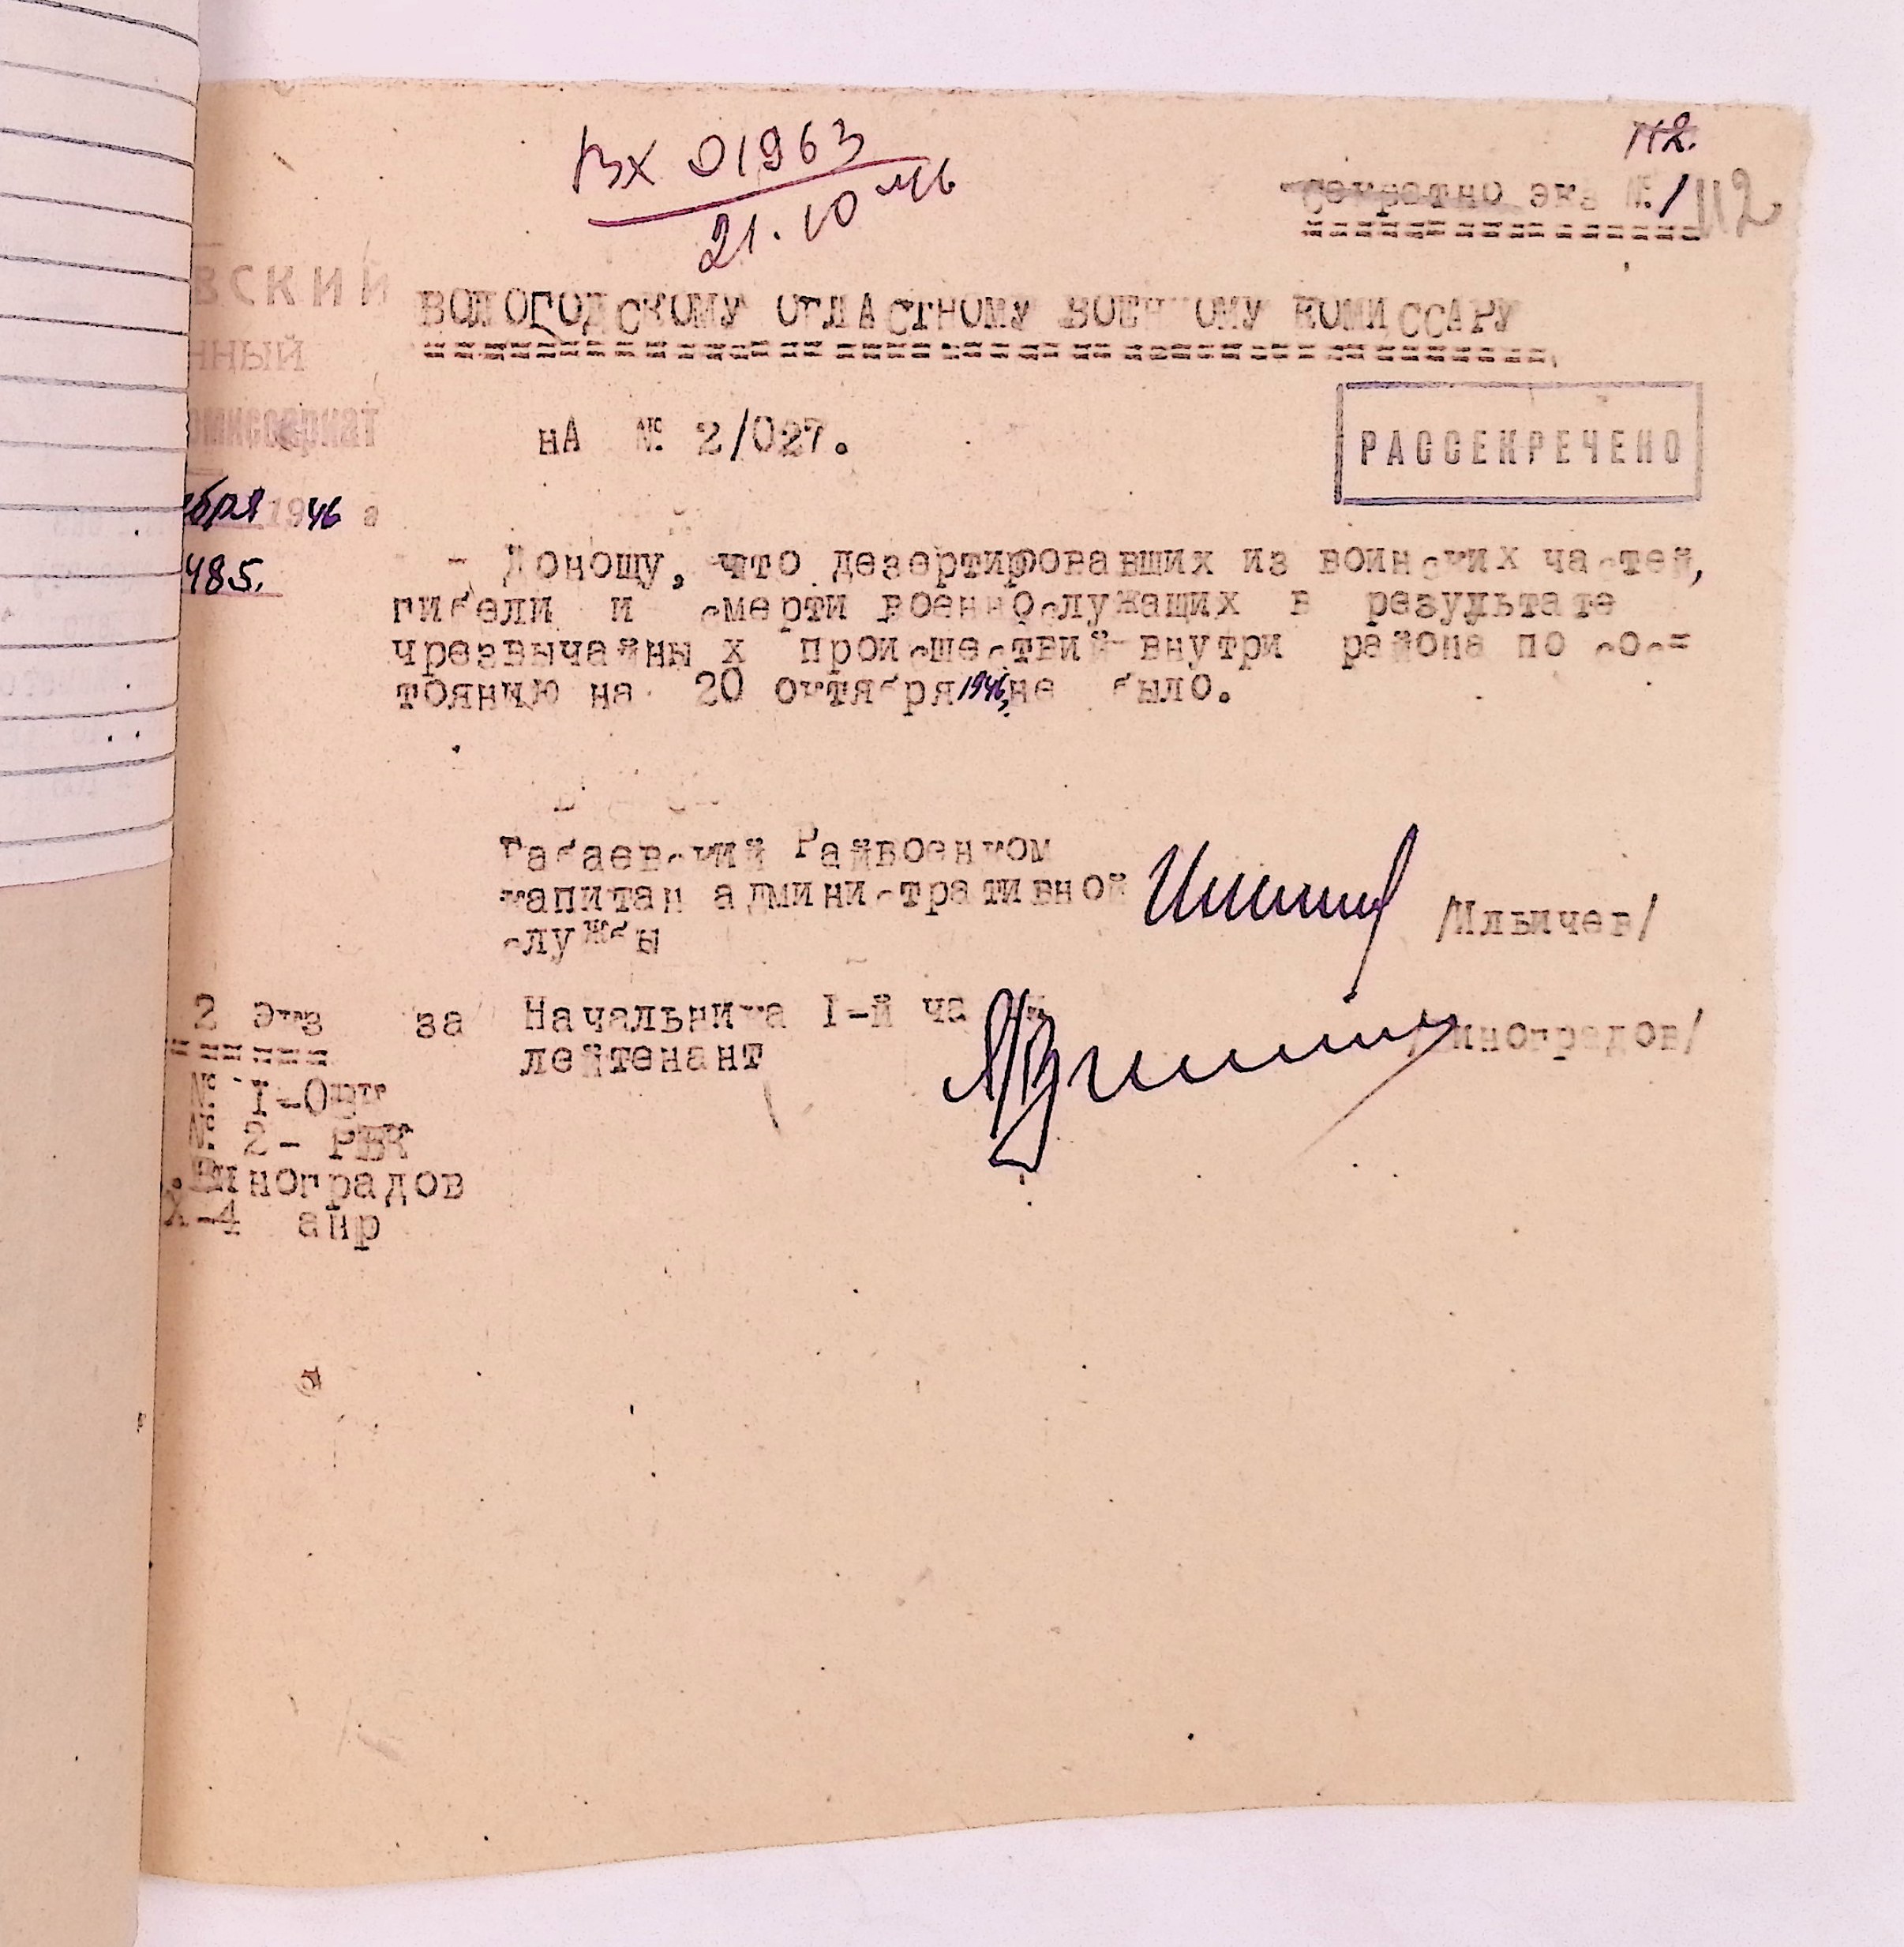 112.
Вх 01963
21.10 46
Секретно экз № 1
112
ВСКИЙ
ННЫЙ
ОМИССАРИАТ
ября 1946 г
485.
ВОЛОГОДСКОМУ ОБЛАСТНОМУ ВОЕННОМУ КОМИССАРУ
нА № 2/027.
РАССЕКРЕЧЕНО
- Доношу, что дезертировавших из воинских частей,
гибели и смерти военнослужащих в результате
чрезвычайны х происшествий внутри района по сос=
тоянию на 20 октября 1946 не было.
Бабаевский Райвоенком
капитан административной
службы
/Ильичев/
за Начальника I-й части
лейтенант
/Виноградов/
2 экз
№ I-ОВК
№ 2- РВК
Виноградов
Х-4 апр